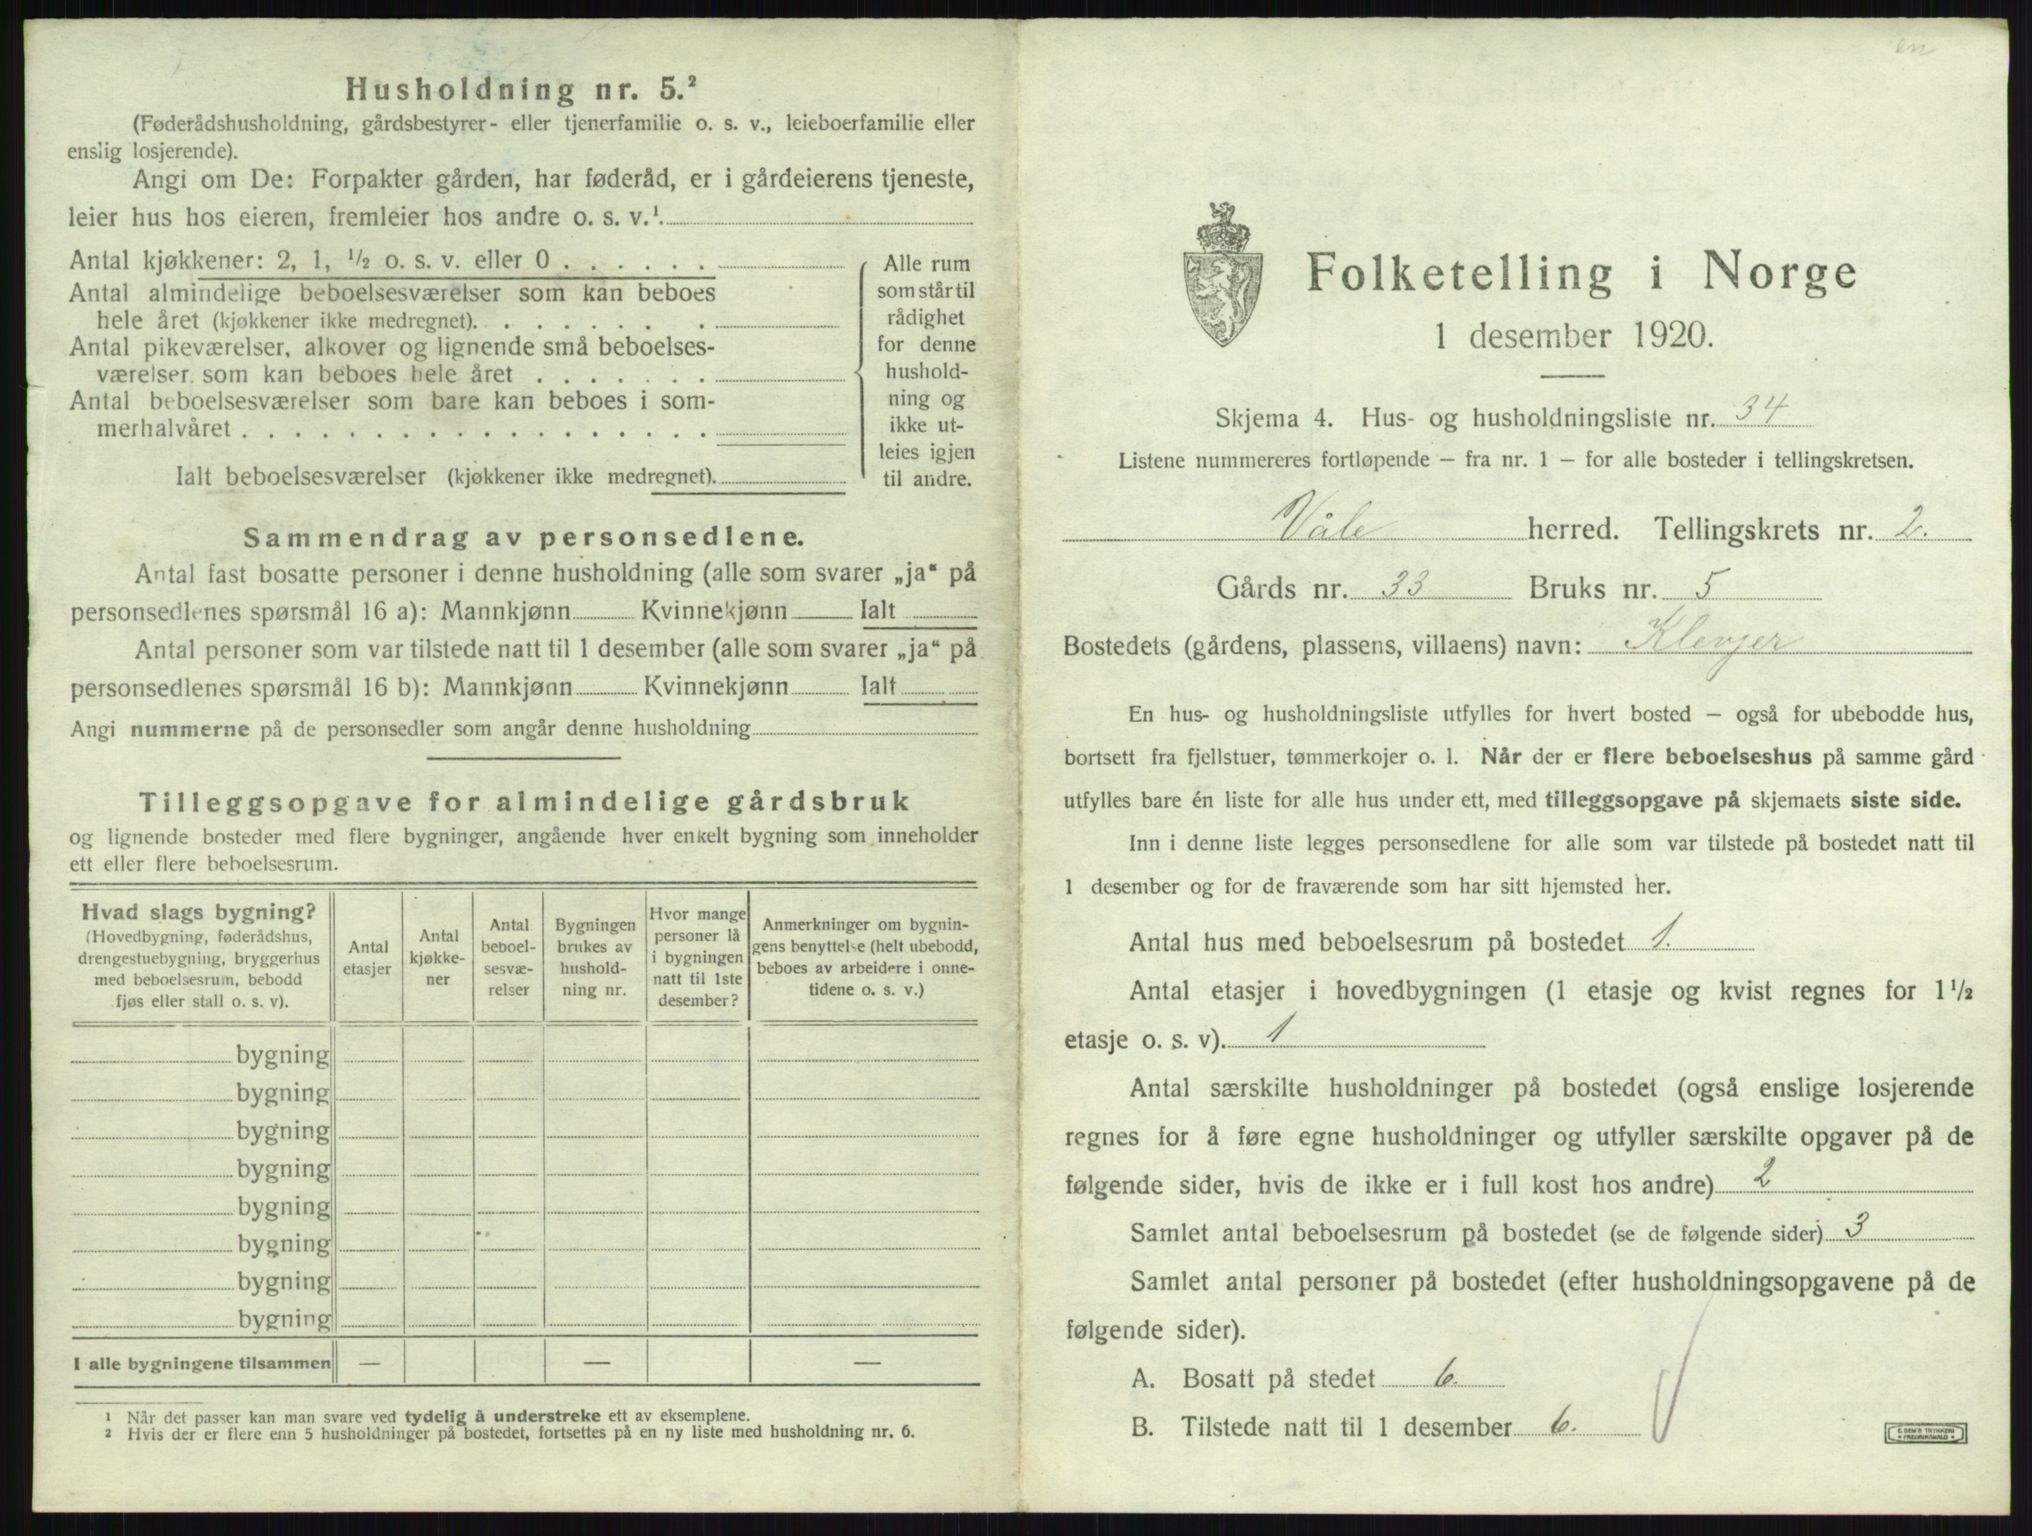 Husholdning nr. 5.²
(Føderådshusholdning, gårdsbestyrer- eller tjenerfamilie o. s. v., leieboerfamilie eller
enslig losjerende).
Angi om De: Forpakter gården, har føderåd, er i gårdeierens tjeneste,
leier hus hos eieren, fremleier hos andre o. s. v.¹
Antal kjøkkener: 2, 1, ½ o. s. v. eller 0
Antal almindelige beboelsesværelser som kan beboes
hele året (kjøkkener ikke medregnet).
Antal pikeværelser, alkover og lignende små beboelses-
værelser som kan beboes hele året
Antal beboelsesværelser som bare kan beboes i som-
merhalvåret
Ialt beboelsesværelser (kjøkkener ikke medregnet).
Alle rum
som står til
rådighet
for denne
hushold-
ning og
ikke ut-
leies igjen
til andre.
Sammendrag av personsedlene.
Antal fast bosatte personer i denne husholdning (alle som svarer „ja“ på
personsedlenes spørsmål 16 a): Mannkjønn Kvinnekjønn Ialt
Antal personer som var tilstede natt til 1 desember (alle som svarer „ja“ på
personsedlenes spørsmål 16 b): Mannkjønn Kvinnekjønn Ialt
Angi nummerne på de personsedler som angår denne husholdning
Tilleggsopgave for almindelige gårdsbruk
og lignende bosteder med flere bygninger, angående hver enkelt bygning som inneholder
ett eller flere beboelsesrum.
Hvad slags bygning?
(Hovedbygning, føderådshus,
drengestuebygning, bryggerhus
med beboelsesrum, bebodd
fjøs eller stall o. s. v).
Antal
etasjer
Antal
kjøkke-
ner
Antal
beboel-
sesvæ-
relser
Bygningen
brukes av
hushold-
ning nr.
Hvor mange
personer lå
i bygningen
natt til 1ste
desember?
Anmerkninger om bygnin-
gens benyttelse (helt ubebodd,
beboes av arbeidere i onne-
tidene o. s. v.)
bygning
bygning
bygning
bygning
bygning
bygning
bygning
bygning
I alle bygningene tilsammen — — —
¹ Når det passer kan man svare ved tydelig å understreke ett av eksemplene.
² Hvis der er flere enn 5 husholdninger på bostedet, fortsettes på en ny liste med husholdning nr. 6.
en
Folketelling i Norge
1 desember 1920.
Skjema 4. Hus- og husholdningsliste nr. 34
Listene nummereres fortløpende — fra nr. 1 — for alle bosteder i tellingskretsen.
Våle herred. Tellingskrets nr. 2.
Gårds nr. 33 Bruks nr. 5
Bostedets (gårdens, plassens, villaens) navn: Klevjer
En hus- og husholdningsliste utfylles for hvert bosted — også for ubebodde hus,
bortsett fra fjellstuer, tømmerkojer o. l. Når der er flere beboelseshus på samme gård
utfylles bare én liste for alle hus under ett, med tilleggsopgave på skjemaets siste side.
Inn i denne liste legges personsedlene for alle som var tilstede på bostedet natt til
1 desember og for de fraværende som har sitt hjemsted her.
Antal hus med beboelsesrum på bostedet 1.
Antal etasjer i hovedbygningen (1 etasje og kvist regnes for 1½
etasje o. s. v). 1
Antal særskilte husholdninger på bostedet (også enslige losjerende
regnes for å føre egne husholdninger og utfyller særskilte opgaver på de
følgende sider, hvis de ikke er i full kost hos andre) 2
Samlet antal beboelsesrum på bostedet (se de følgende sider) 3
Samlet antal personer på bostedet (efter husholdningsopgavene på de
følgende sider).
A. Bosatt på stedet 6.
B. Tilstede natt til 1 desember 6.